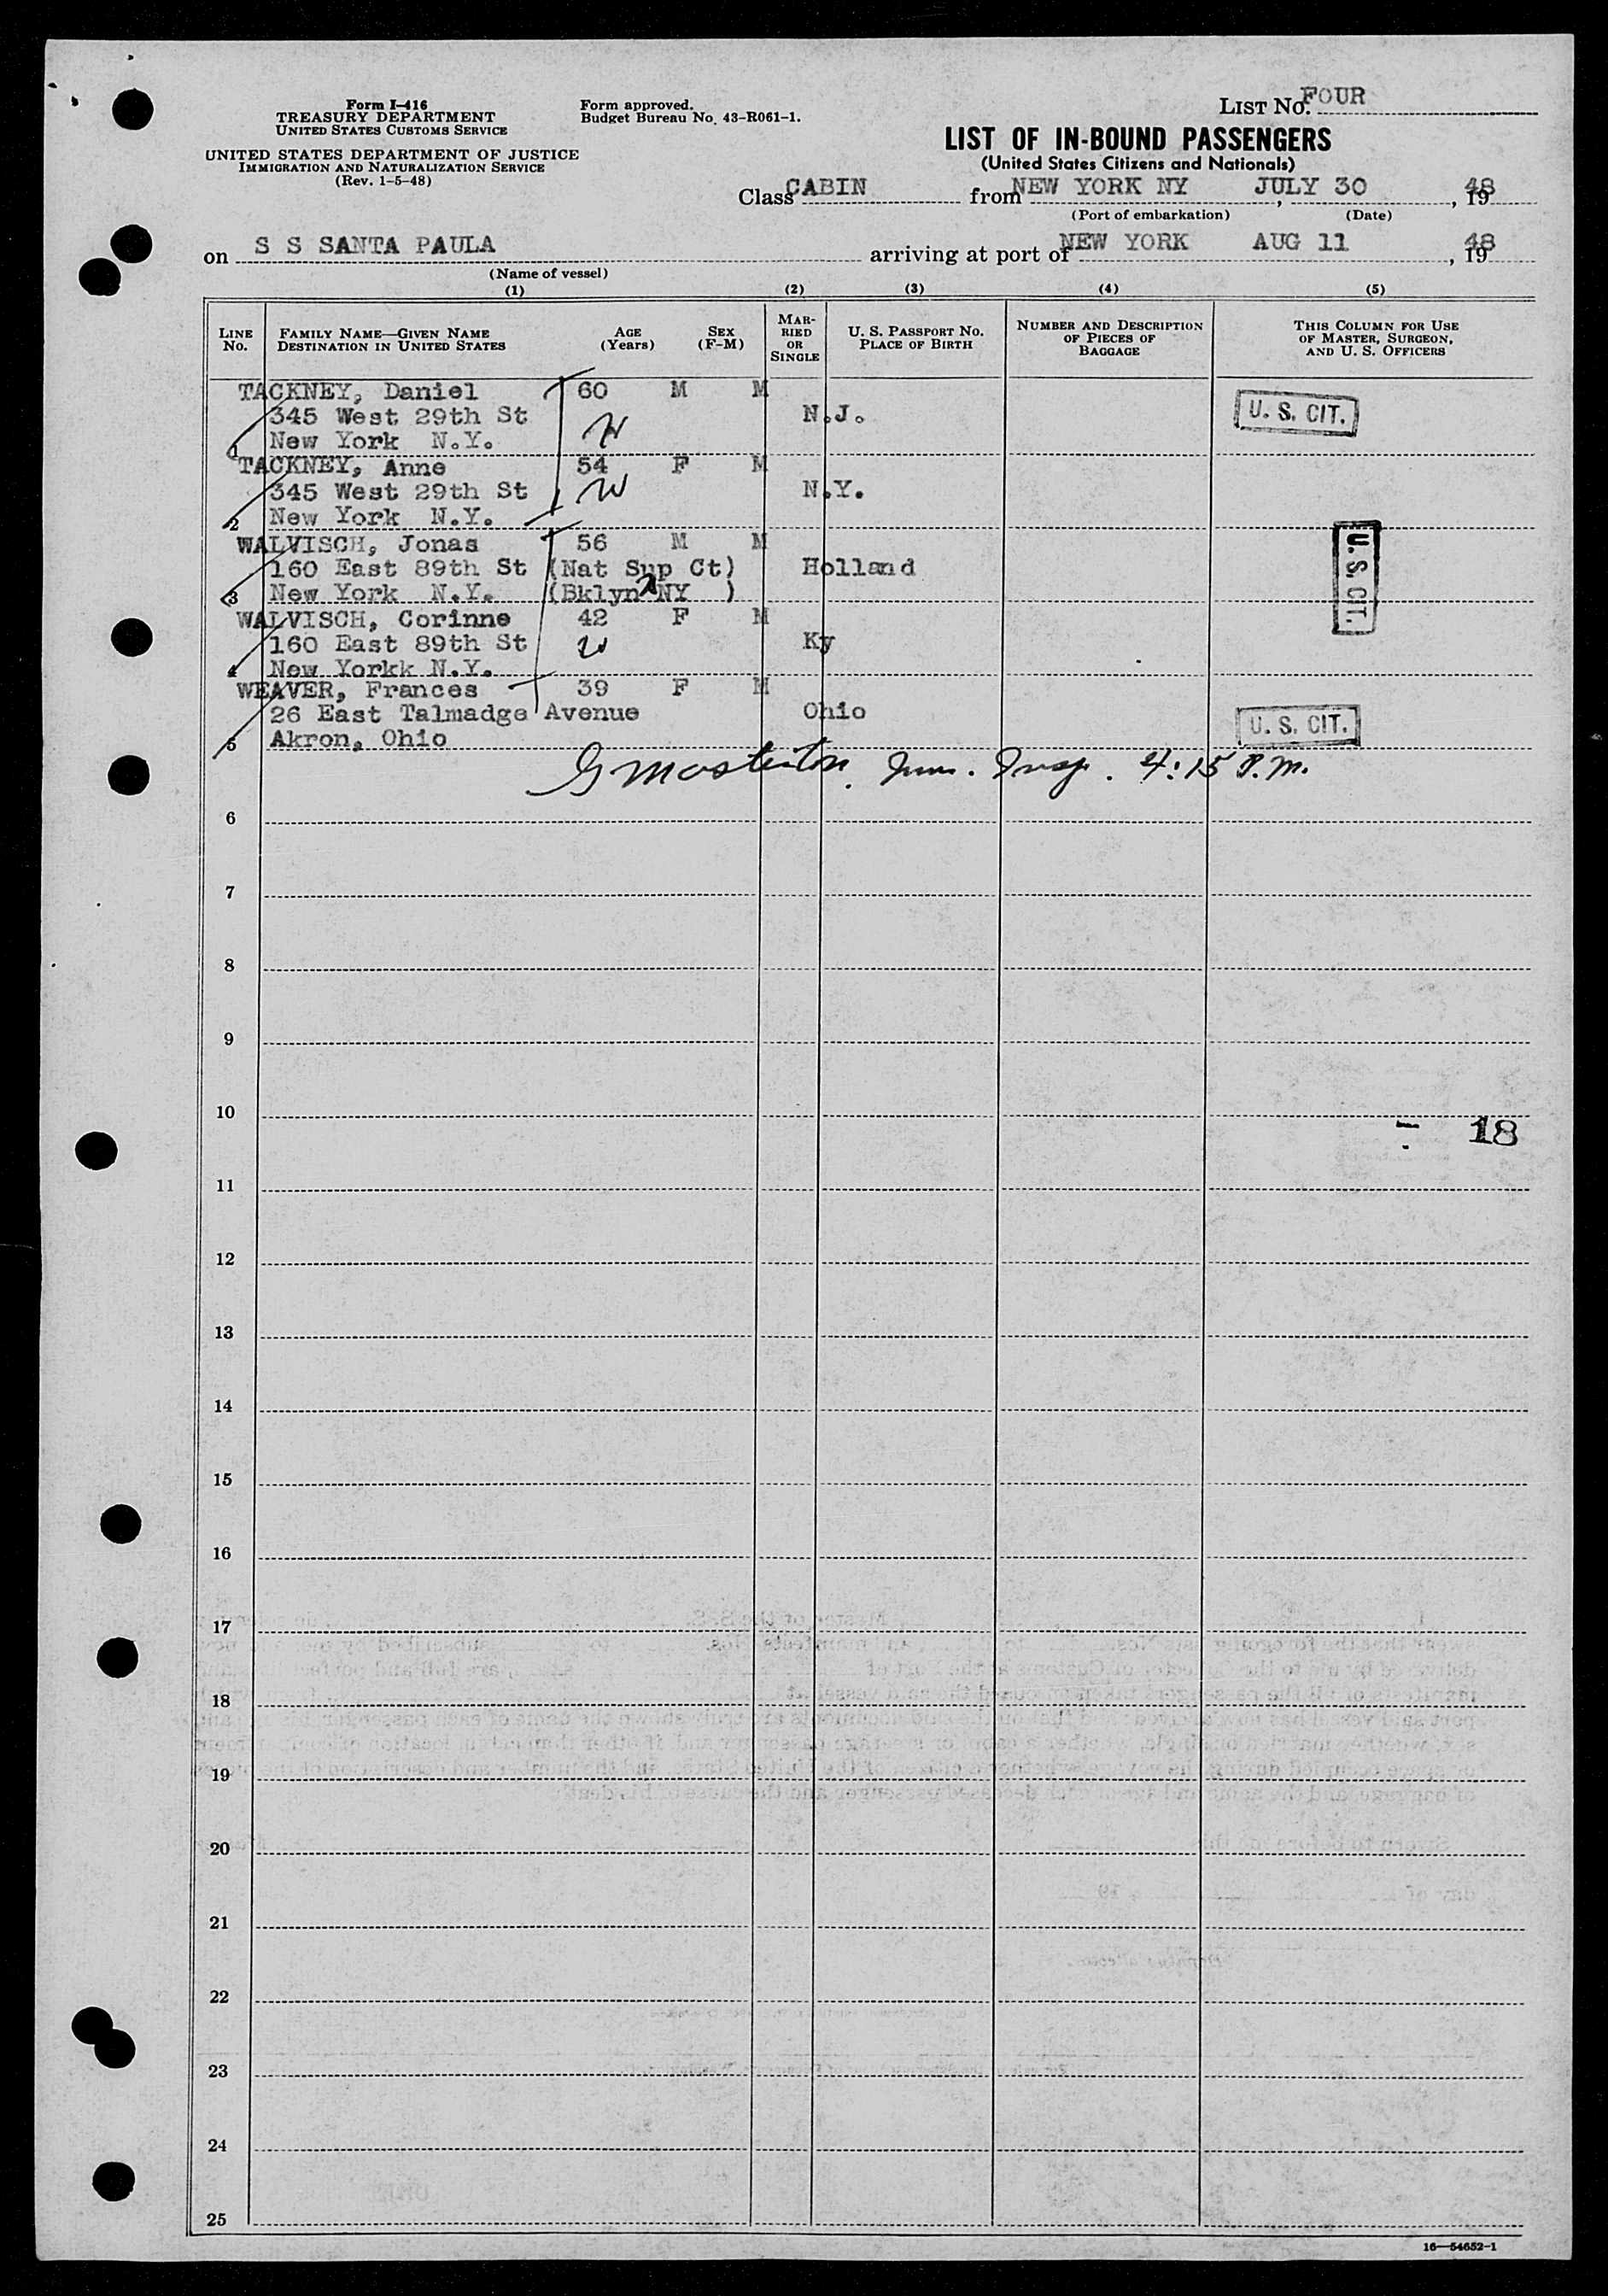 Form I-416
TREASURY DEPARTMENT
UNITED STATES CUSTOMS SERVICE
UNITED STATES DEPARTMENT OF JUSTICE
IMMIGRATION AND NATURALIZATION SERVICE
(Rev. 1-5-48)
Form approved.
Budget Bureau No. 43-R061-1.
LIST NO. FOUR
LIST OF IN-BOUND PASSENGERS
(United States Citizens and Nationals)
Class CABIN from NEW YORK NY, JULY 30, 1948
(Port of embarkation) (Date)
on S S SANTA PAULA arriving at port of NEW YORK AUG 11, 1948
(Name of vessel)
(1) (2) (3) (4) (5)
LINE No.
FAMILY NAME—GIVEN NAME
DESTINATION IN UNITED STATES
AGE (Years)
SEX (F-M)
MARRIED OR SINGLE
U. S. PASSPORT NO.
PLACE OF BIRTH
NUMBER AND DESCRIPTION OF PIECES OF BAGGAGE
THIS COLUMN FOR USE OF MASTER, SURGEON, AND U. S. OFFICERS
TACKNEY, Daniel 60 M M
345 West 29th St N.J. U. S. CIT.
1 New York N.Y.
TACKNEY, Anne 54 F M
345 West 29th St N.Y.
2 New York N.Y.
WALVISCH, Jonas 56 M M
160 East 89th St (Nat Sup Ct) Holland U. S. CIT.
3 New York N.Y. (Bklyn NY )
WALVISCH, Corinne 42 F M
160 East 89th St Ky
4 New Yorkk N.Y.
WEAVER, Frances 39 F M
26 East Talmadge Avenue Ohio U. S. CIT.
5 Akron, Ohio
G Masterton. Imm. Insp. 4:15 P.M.
6
7
8
9
10
18
11
12
13
14
15
16
17
18
19
20
21
22
23
24
25
16—54652-1